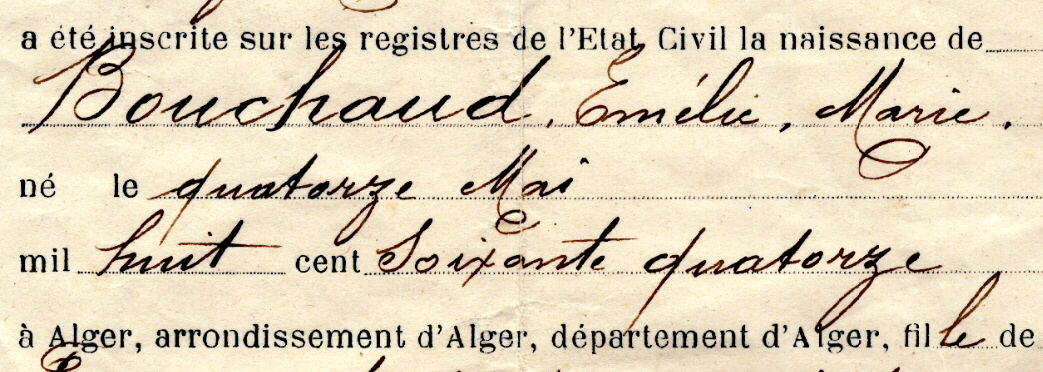 a été inscrite sur les registres de l'Etat Civil la naissance de
Bouchaud, Emélie, Marie,
né le quatorze Mai
mil huit cent Soixante quatorze
à Alger, arrondissement d'Alger, département d'Alger, fille de